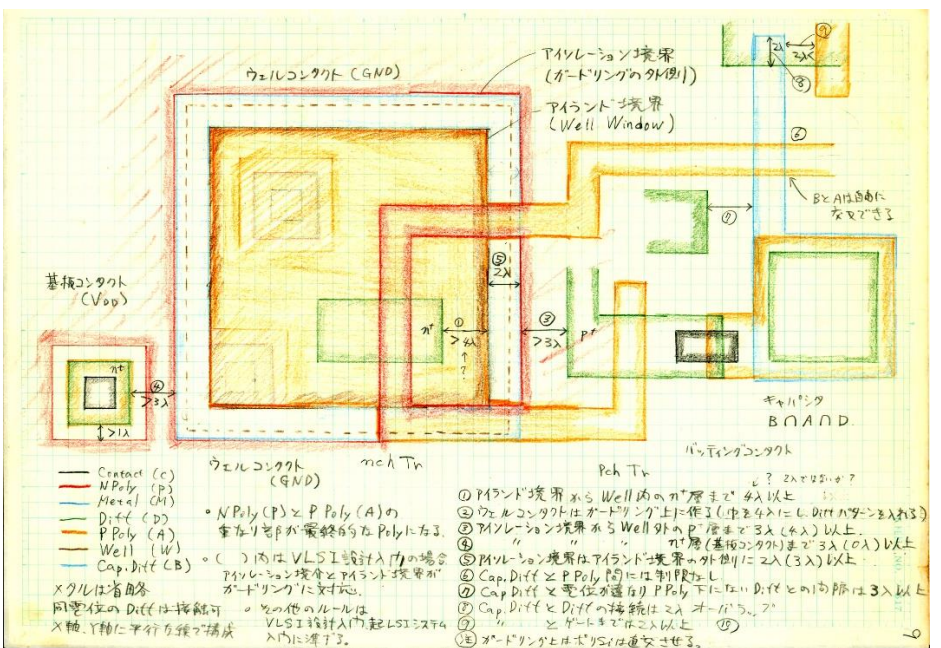 アイソレーション境界
(ガードリングの外側)
ウェルコンタクト (GND)
アイランド境界
(Well Window)
2λ
⑨
2λ
⑧
⑥
BとAは自由に
交叉できる
⑦
⑤
2λ
基板コンタクト
(VDD)
n+
①
>4λ
↑
?
③
>3λ
p+
n+
④
>3λ
>1λ
キャパシタ
B∩A∩D
バッティングコンタクト
nch Tr
Pch Tr
ウェルコンタクト
(GND)
Contact (C)
NPoly (P)
Metal (M)
Diff (D)
PPoly (A)
Well (W)
Cap.Diff (B)
メタルは省略
同電位のDiffは接続可
X軸、Y軸に平行な線で構成
• NPoly(P)とPPoly(A)の
重なり部が最終的なPolyになる。
• ( )内はVLSI設計入門の場合
アイソレーション境界とアイランド境界が
ガードリングに対応。
• その他のルールは
VLSI設計入門、超LSIシステム
入門に準ずる。
? 2λではないか?
① アイランド境界からWell内のn+層まで 4λ以上
② ウェルコンタクトはガードリング上に作る(巾を4λにし、Diffパターンを入れる)
③ アイソレーション境界からWell外のP+層まで3λ(4λ)以上
④ 〃 〃 n+層(基板コンタクト)まで3λ(0λ)以上
⑤ アイソレーション境界はアイランド境界の外側に2λ(3λ)以上
⑥ Cap.DiffとPPoly間には制限なし
⑦ Cap.Diffと電位が違なりPPoly下にないDiffとの間隔は3λ以上
⑧ Cap.DiffとDiffの接続は2λオーバラップ
⑨ 〃 とゲートまでは2λ以上
ガードリング上はポリSiは直交させる。